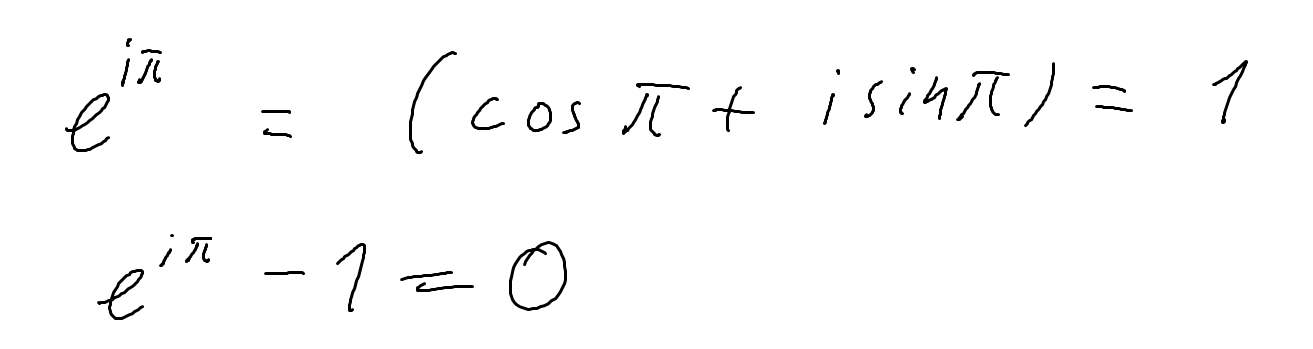 e^{iπ} = (cos π + i sin π) = 1
e^{iπ} - 1 = 0